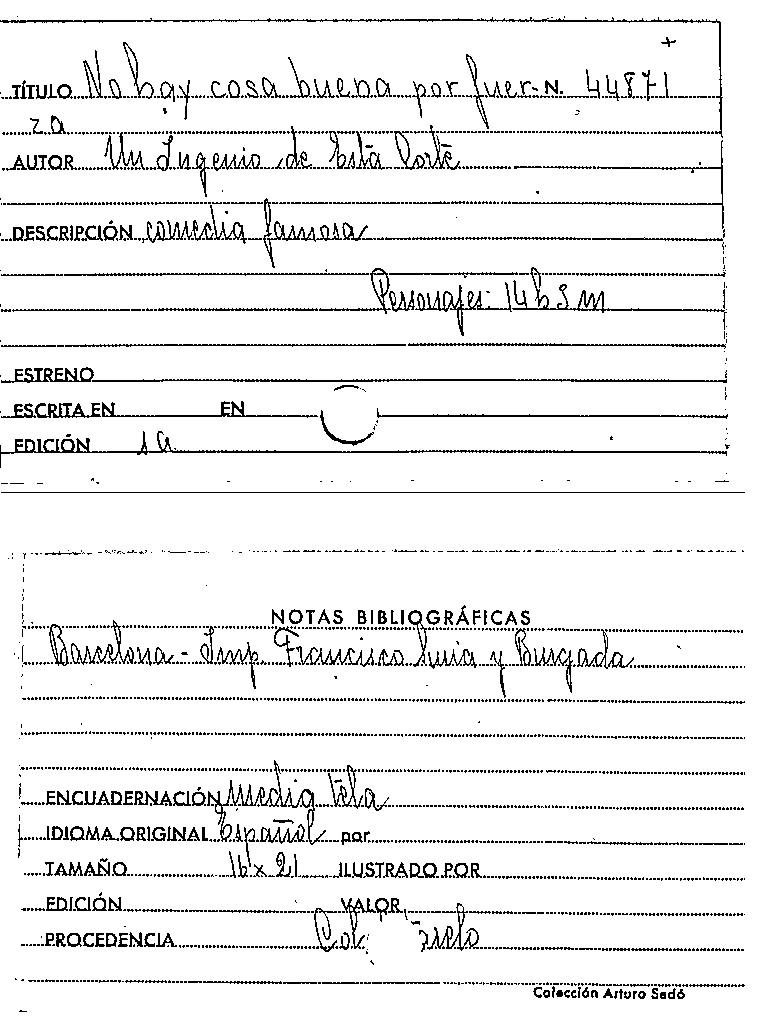 +
TÍTULO No hay cosa buena por fuer- N. 44871
za
AUTOR Un Ingenio de Esta Corte
DESCRIPCIÓN comedia famosa
Personajes: 14 h 3 m
ESTRENO
ESCRITA EN EN
EDICIÓN s a
NOTAS BIBLIOGRÁFICAS
Barcelona - Imp. Francisco Suria y Burgada
ENCUADERNACIÓN Media tela
IDIOMA ORIGINAL Español por
TAMAÑO 16 x 21 ILUSTRADO POR
EDICIÓN VALOR
PROCEDENCIA Col.
Colección Arturo Sedó